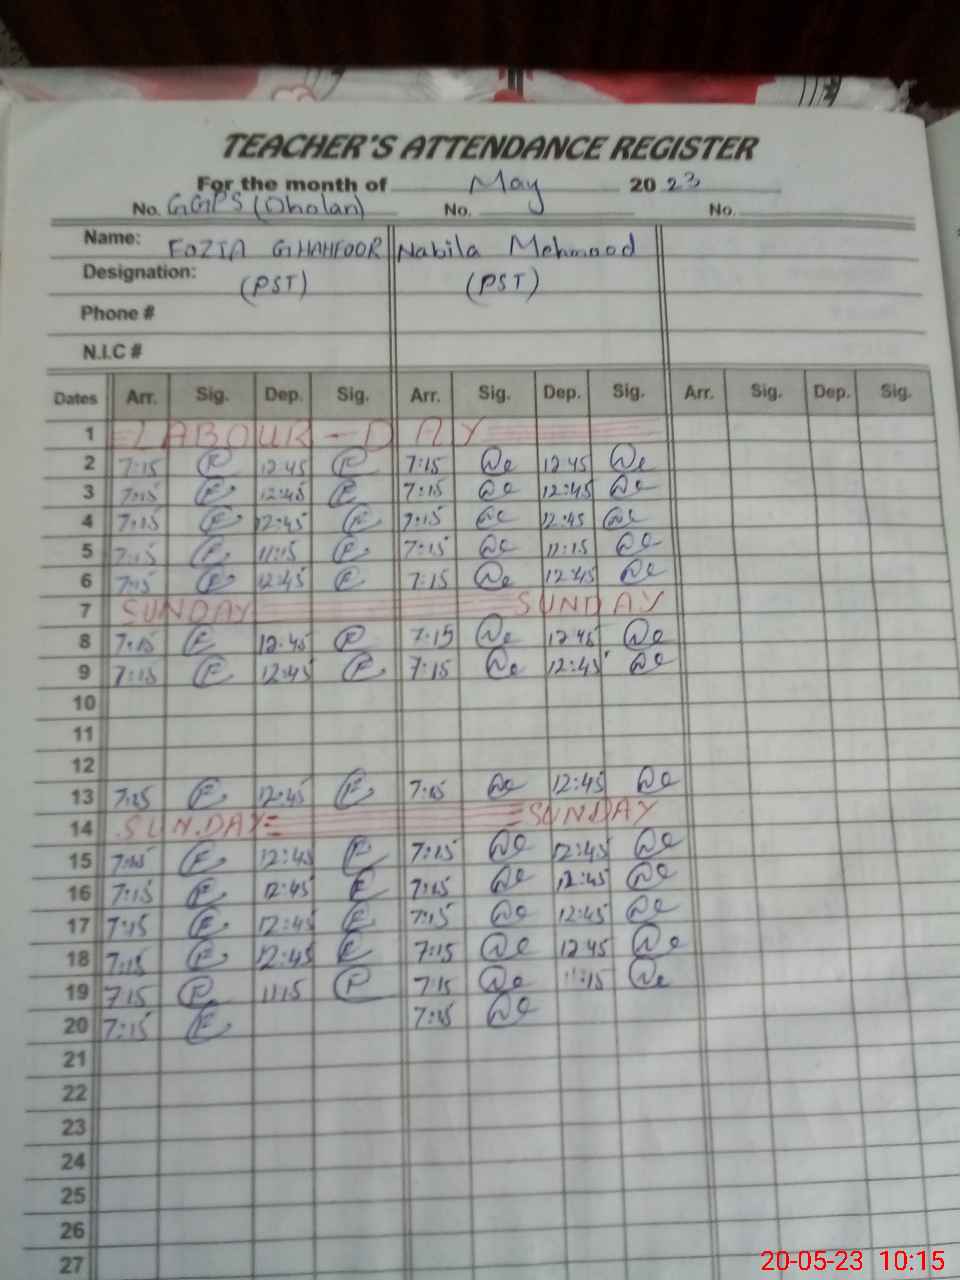 TEACHER'S ATTENDANCE REGISTER
For the month of May 2023
No. GGPS (Dholan) No. No.
Name: FOZIA GHAHFOOR Nabila Mehmood
Designation: (PST) (PST)
Phone #
N.I.C #
Dates Arr. Sig. Dep. Sig. Arr. Sig. Dep. Sig. Arr. Sig. Dep. Sig.
1 LABOUR - DAY
2 7:15 12:45 7:15 12:45
3 7:15 12:45 7:15 12:45
4 7:15 12:45 7:15 12:45
5 7:15 11:15 7:15 11:15
6 7:15 12:45 7:15 12:45
7 SUNDAY SUNDAY
8 7:15 12:45 7:15 12:45
9 7:15 12:45 7:15 12:45
10
11
12
13 7:15 12:45 7:15 12:45
14 SUNDAY SUNDAY
15 7:15 12:45 7:15 12:45
16 7:15 12:45 7:15 12:45
17 7:15 12:45 7:15 12:45
18 7:15 12:45 7:15 12:45
19 7:15 11:15 7:15 11:15
20 7:15 7:15
21
22
23
24
25
26
27
20-05-23 10:15